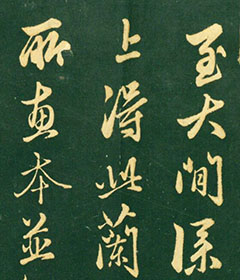 至大間
上得此蘭
所惠本並